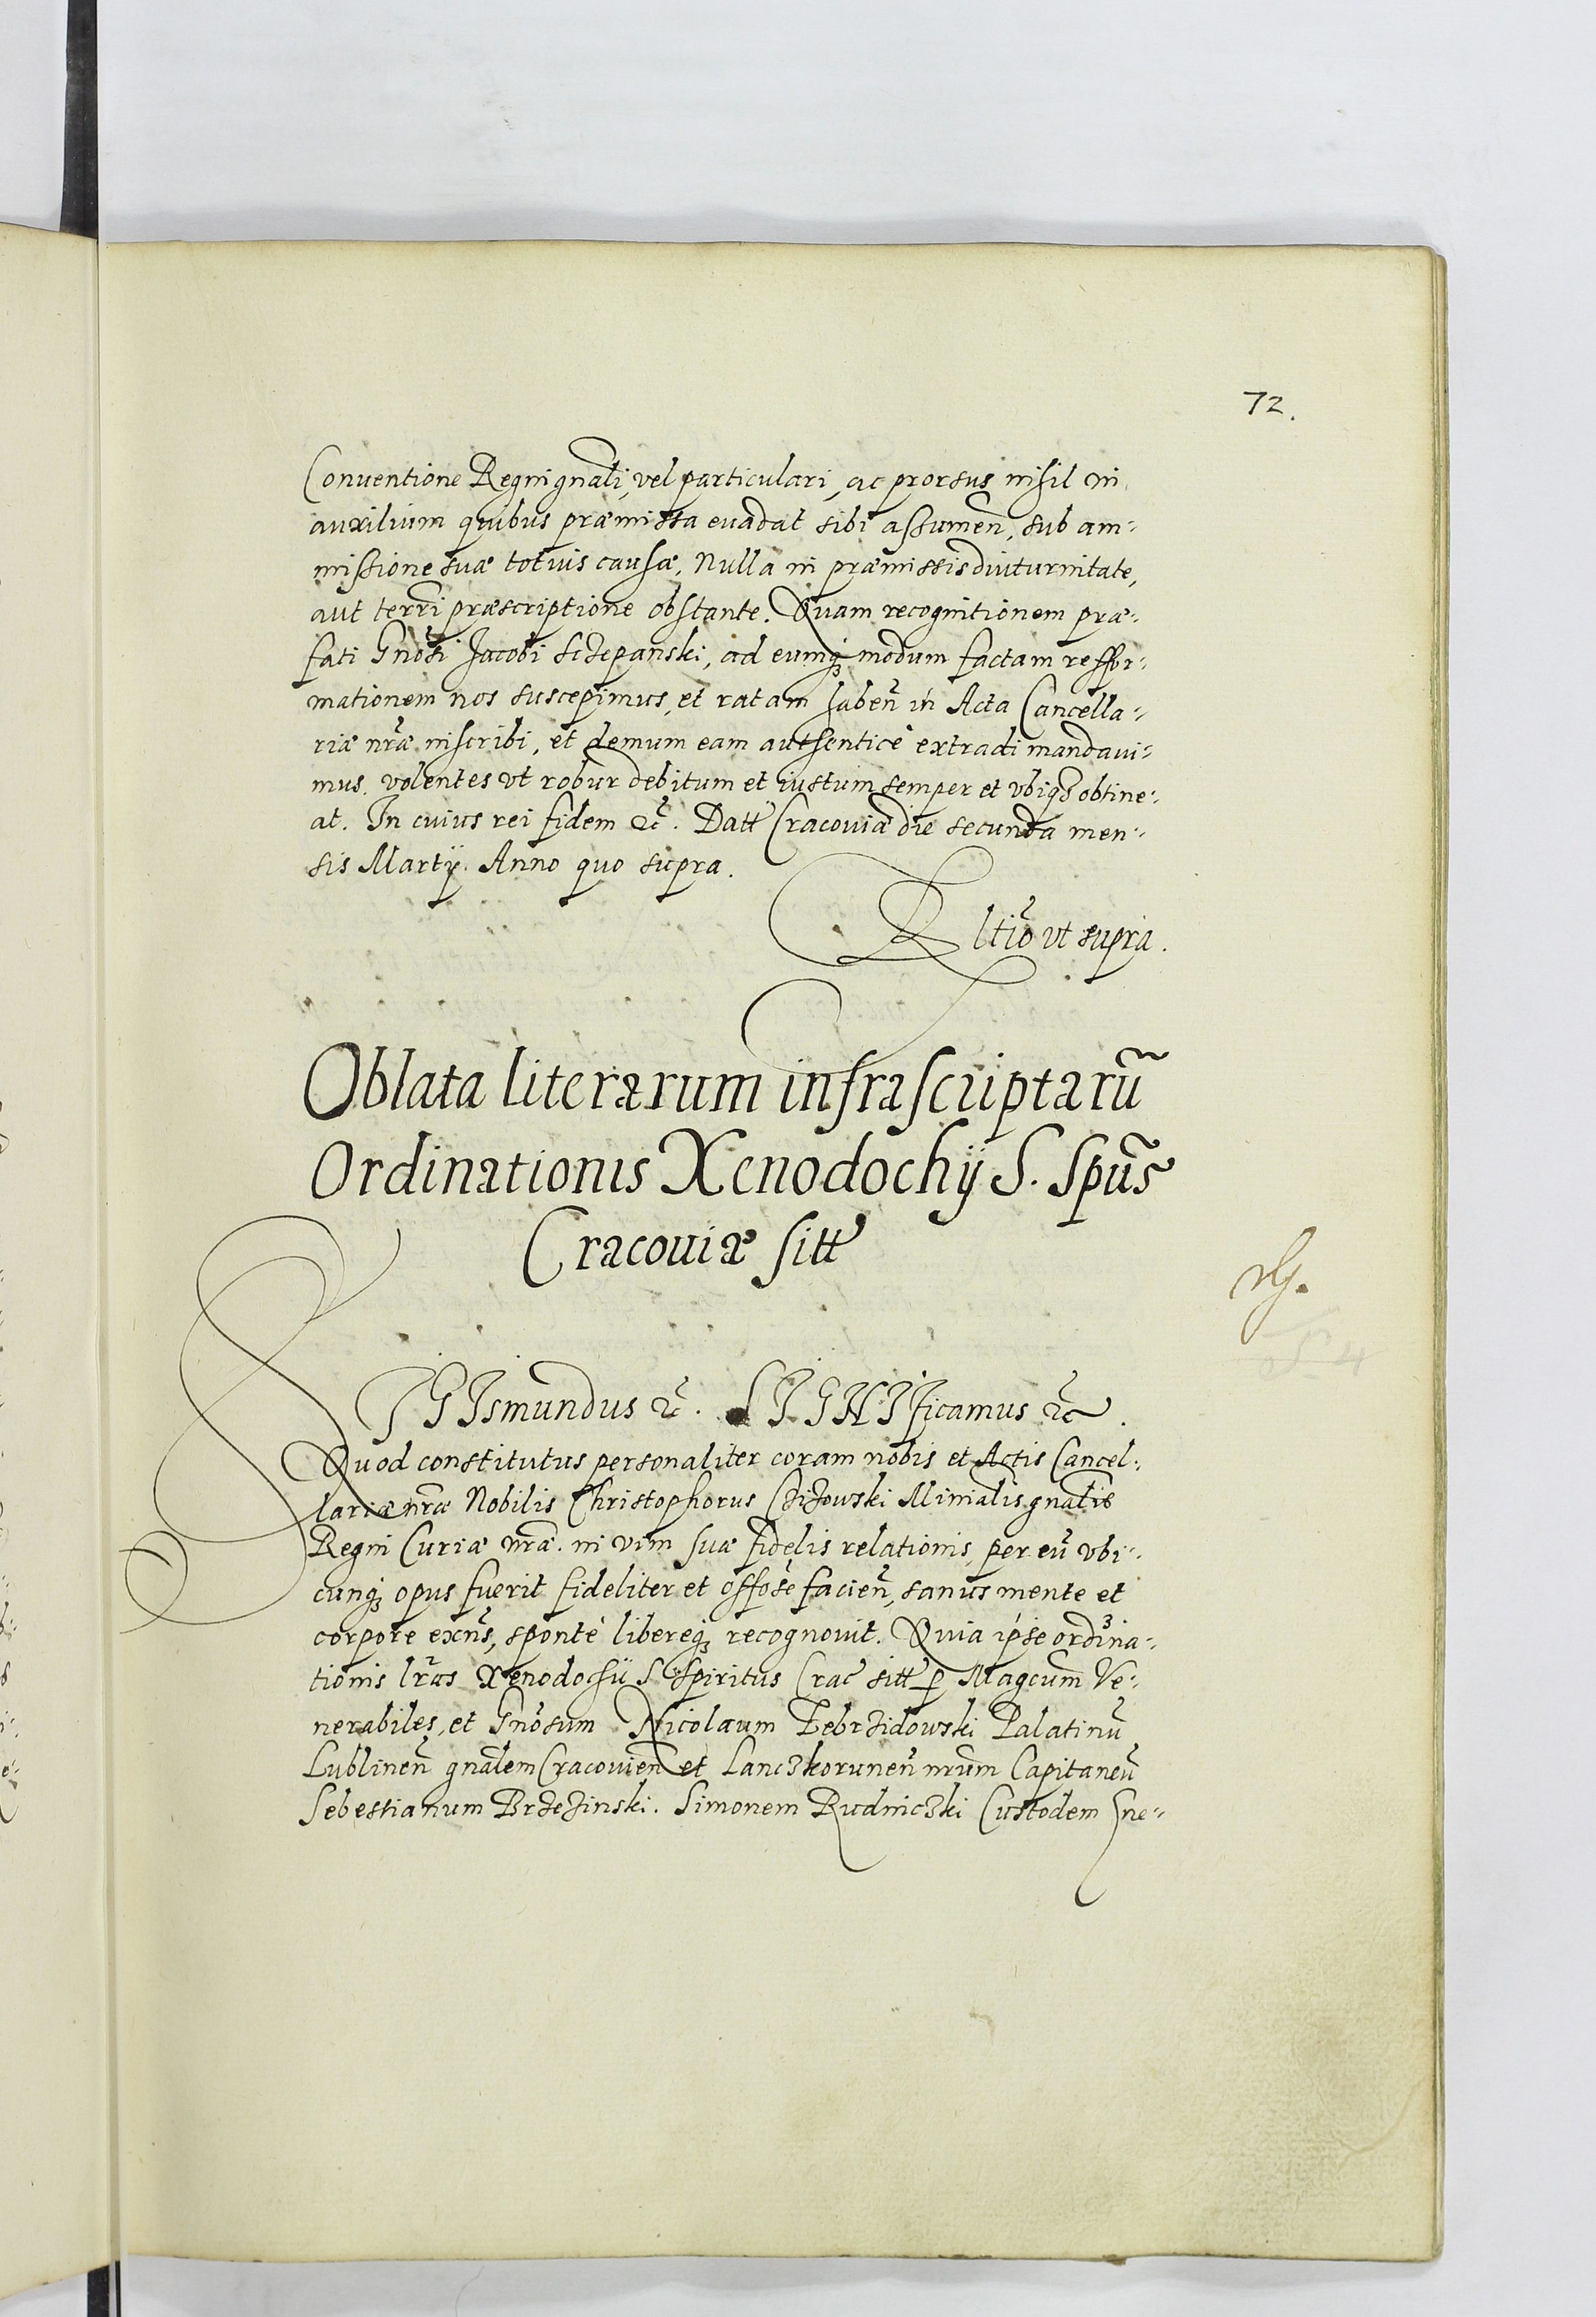 72.
Conuentione Regni gnali, vel particulari, ac prorsus nihil in
auxilium quibus præmissa euadat sibi assumeñ, sub am-
missione suæ totius causæ, Nulla in præmissis diuturnitate,
aut terri præscriptione obstante. Quam recognitionem præ-
fati Gnosi Jacobi Sczepanski, ad eumq; modum factam reffor-
mationem nos suscepimus, et ratam habeñ in Acta Cancella-
riæ nræ inscribi, et demum eam authenticè extradi mandaui-
mus. volentes vt robur debitum et iustum semper et vbiq; obtine-
at. In cuius rei fidem &c. Datt Cracouiæ die secunda men-
sis Martij. Anno quo supra.
Rltio vt supra.
Oblata literarum infrascriptarũ
Ordinationis Xenodochij S. Spũs
Cracouiæ sitt
SIGISmundus &c. SIGNIficamus &c.
Quod constitutus personaliter coram nobis et Actis Cancel-
lariæ nræ Nobilis Christophorus Czizowski Minialis gnalis
Regni Curiæ nræ. in vim suæ fidelis relationis, per eũ vbi-
cunq; opus fuerit fideliter et offose facieñ, sanus mente et
corpore exñs, spontè libereq; recognouit. Quia ipse ordina-
tionis lras Xenodochii S. Spiritus Crac sitt p Magcum Ve-
nerabiles, et Gnosum Nicolaum Zebrzidowski Palatinũ
Lublineñ gnalem Cracovieñ et Lanczkoruneñ nrum Capitaneũ
Sebestianum Brzezinski. Simonem Rudniczki Custodem Gne-